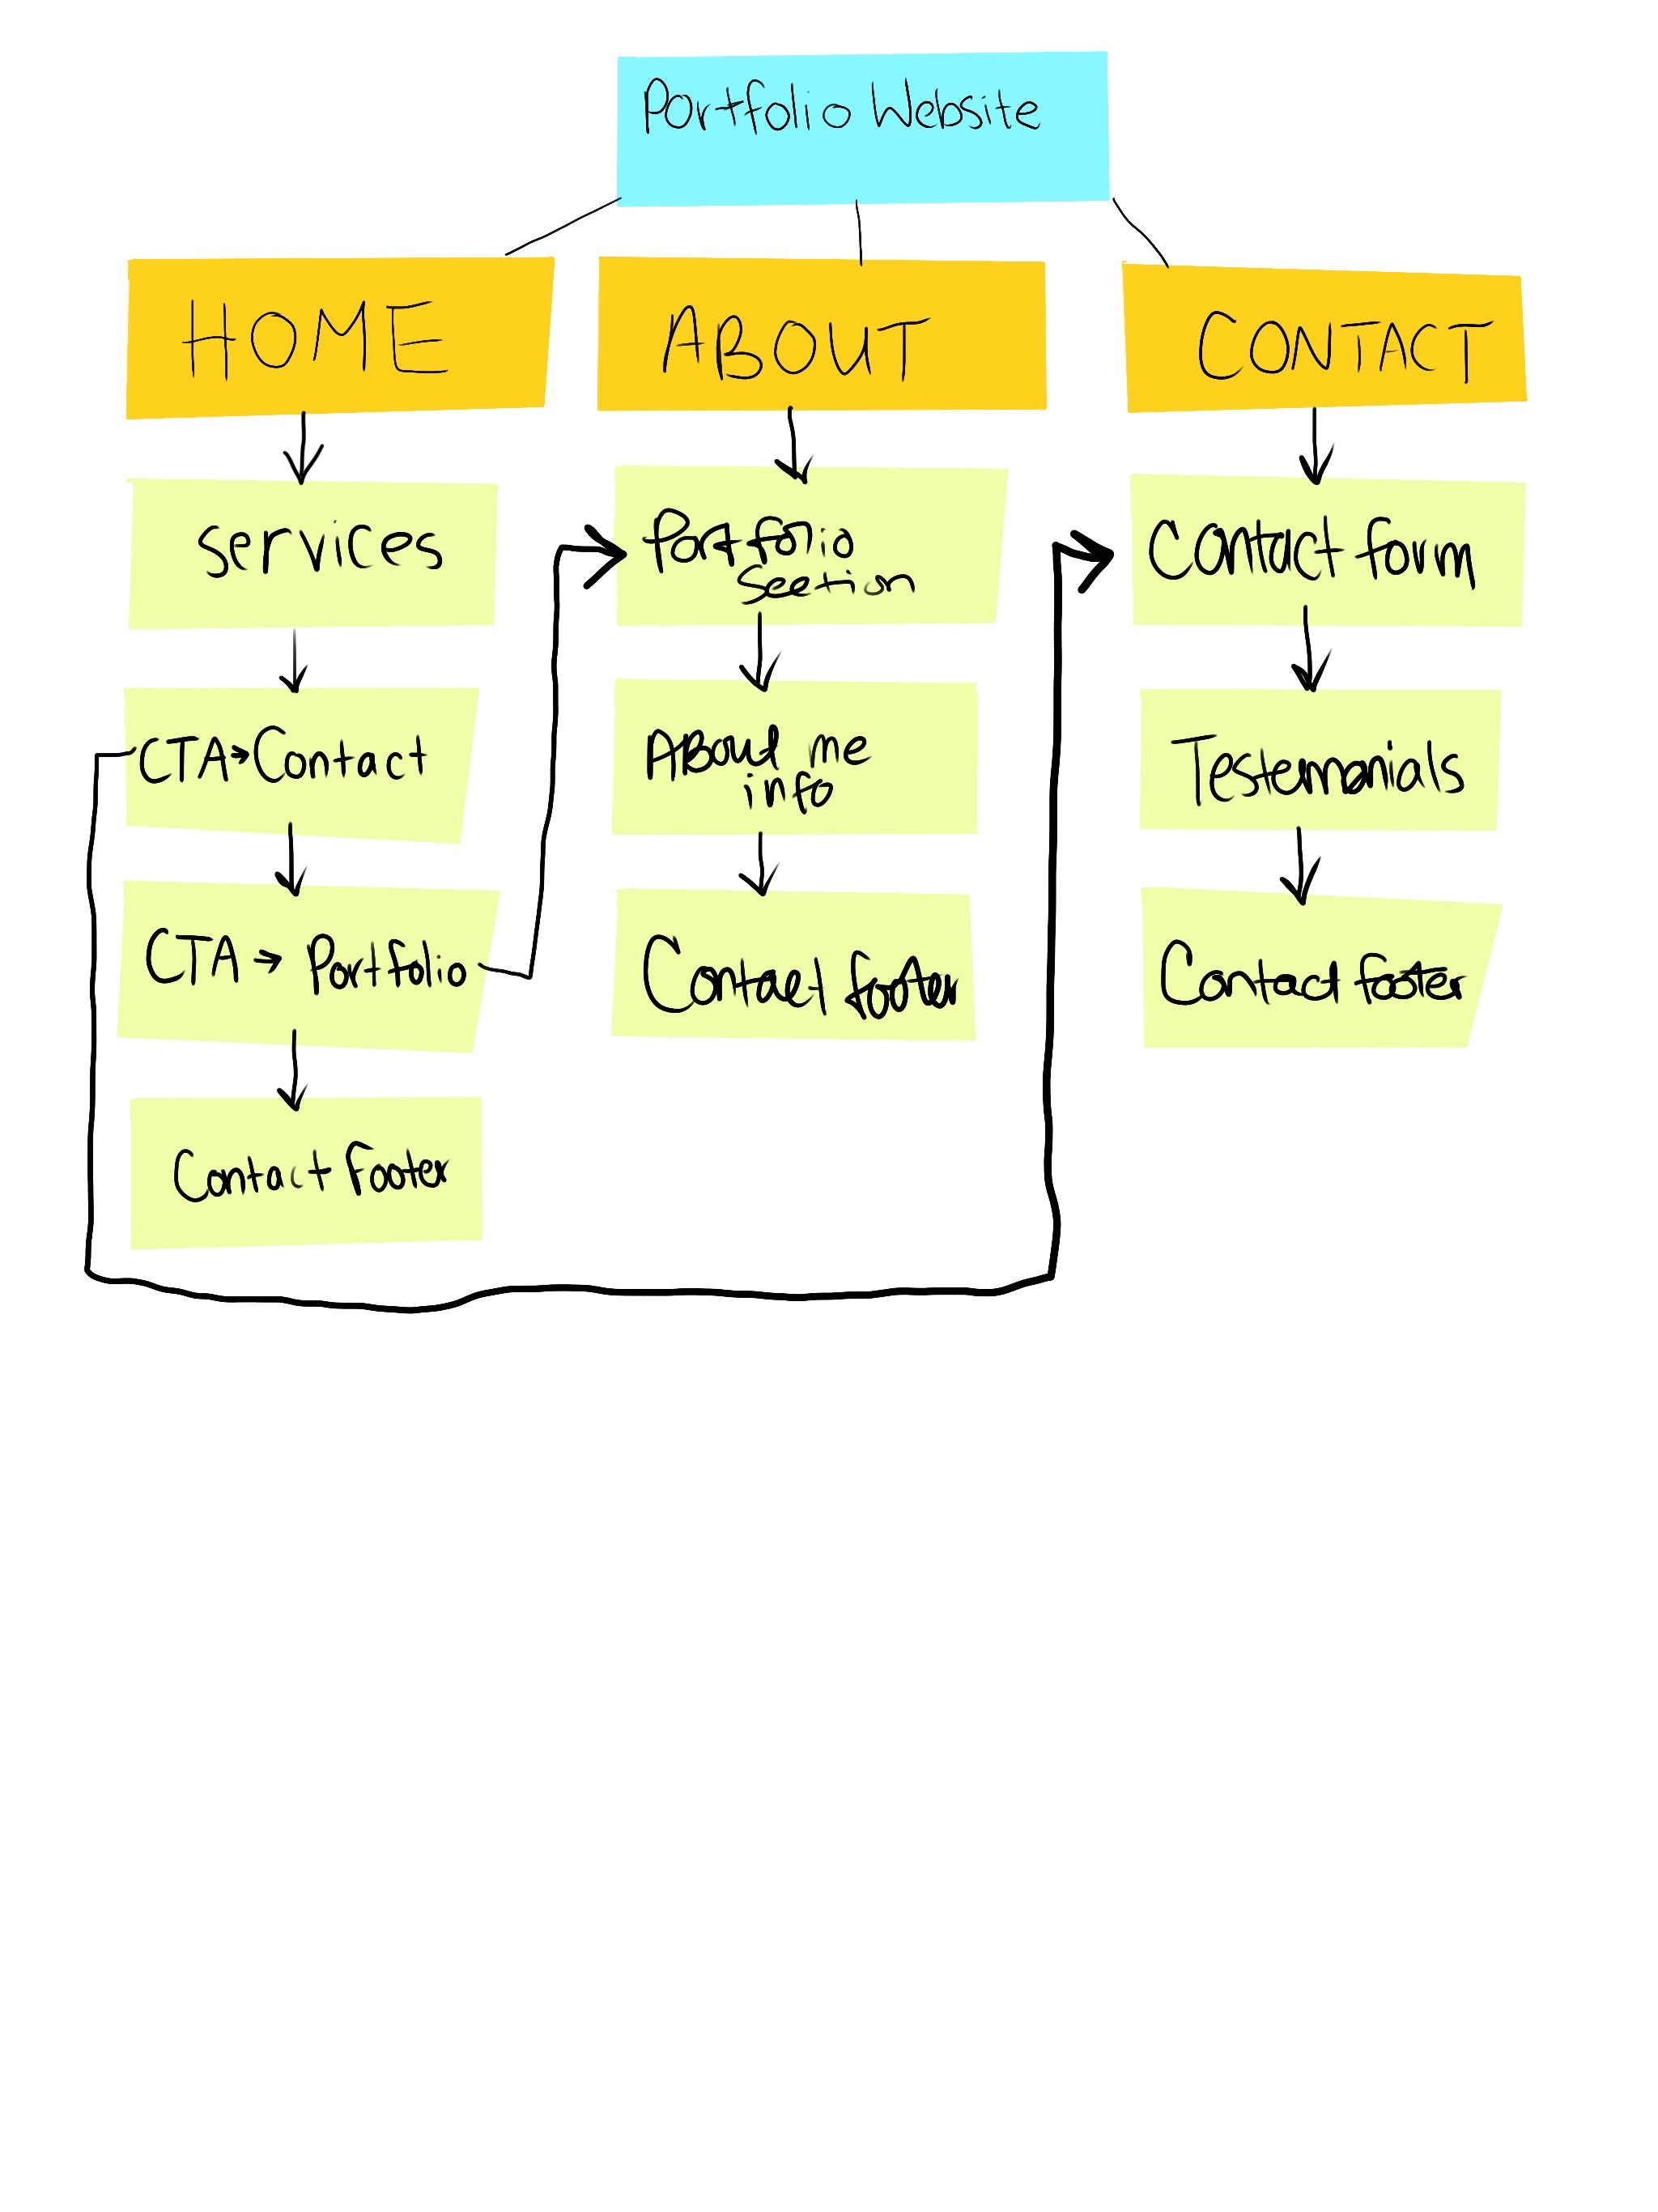 Portfolio Website
HOME
ABOUT
CONTACT
services
CTA → Contact
CTA → Portfolio
Contact footer
Portfolio
Section
About me
info
Contact footer
Contact form
Testemonials
Contact footer